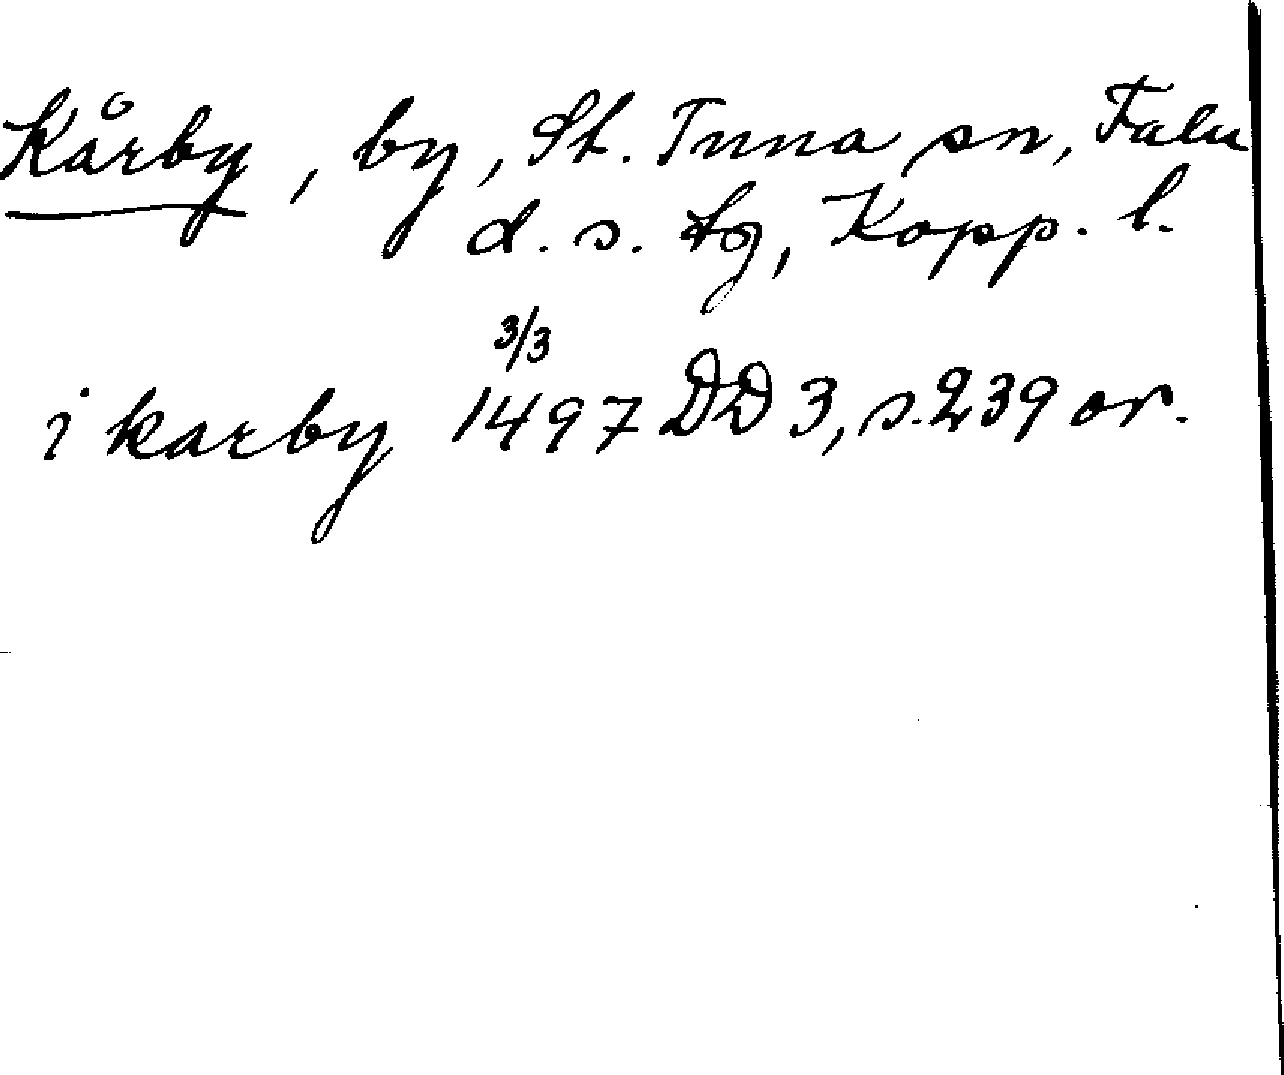 Kårby, by, St. Tuna sn, Falu
d. s. tg, Kopp. l.
3/3
i karby 1497 DD 3, s. 239 or.